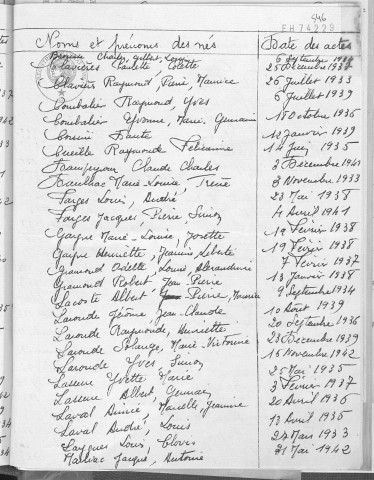 946
EH74229
Noms et prénoms des nés Date des actes
Charles 6 Septembre
Clavières Paulette, Colette 25 Décembre 1937
Claviers Raymond, René, Maurice 26 Juillet 1933
Coubatier Raymond, Yves 6 Juillet 1939
Coubatier Yvonne, Marie, Germain 18 Octobre 1936
Cousin 12 Janvier 1939
Cueille Raymonde Félicienne 14 Juin 1935
Claude Charles 2 Décembre 1941
Marie-Louise, Irène 3 Novembre 1933
Farges Louis, André 23 Mai 1938
Farges Jacques Pierre Simon 4 Avril 1941
Gaigne Marie-Louise, Josette 19 Février 1938
Gaigne Henriette, Jeannine 19 Février 1938
Gramond Odette, Louise, Alexandrine 7 Février 1937
Gramond Robert, Jean-Pierre 13 Janvier 1938
Lacoste Albert Pierre, Maurice 9 Septembre 1934
Laroude Jérôme, Jean-Claude 10 Août 1939
Laroude Raymonde, Henriette 20 Septembre 1936
Laroude Solange, Marie-Victorine 23 Décembre 1939
Laroude Yves, Simon 16 Novembre 1942
Yvette Marie 25 Mai 1935
Albert Germain 3 Février 1937
Laval Aimée, Marcelle, Jeannine 20 Avril 1936
Laval André, Louis 13 Avril 1935
Louis, Clovis 27 Mars 1933
Jacques, Antoine 31 Mai 1942